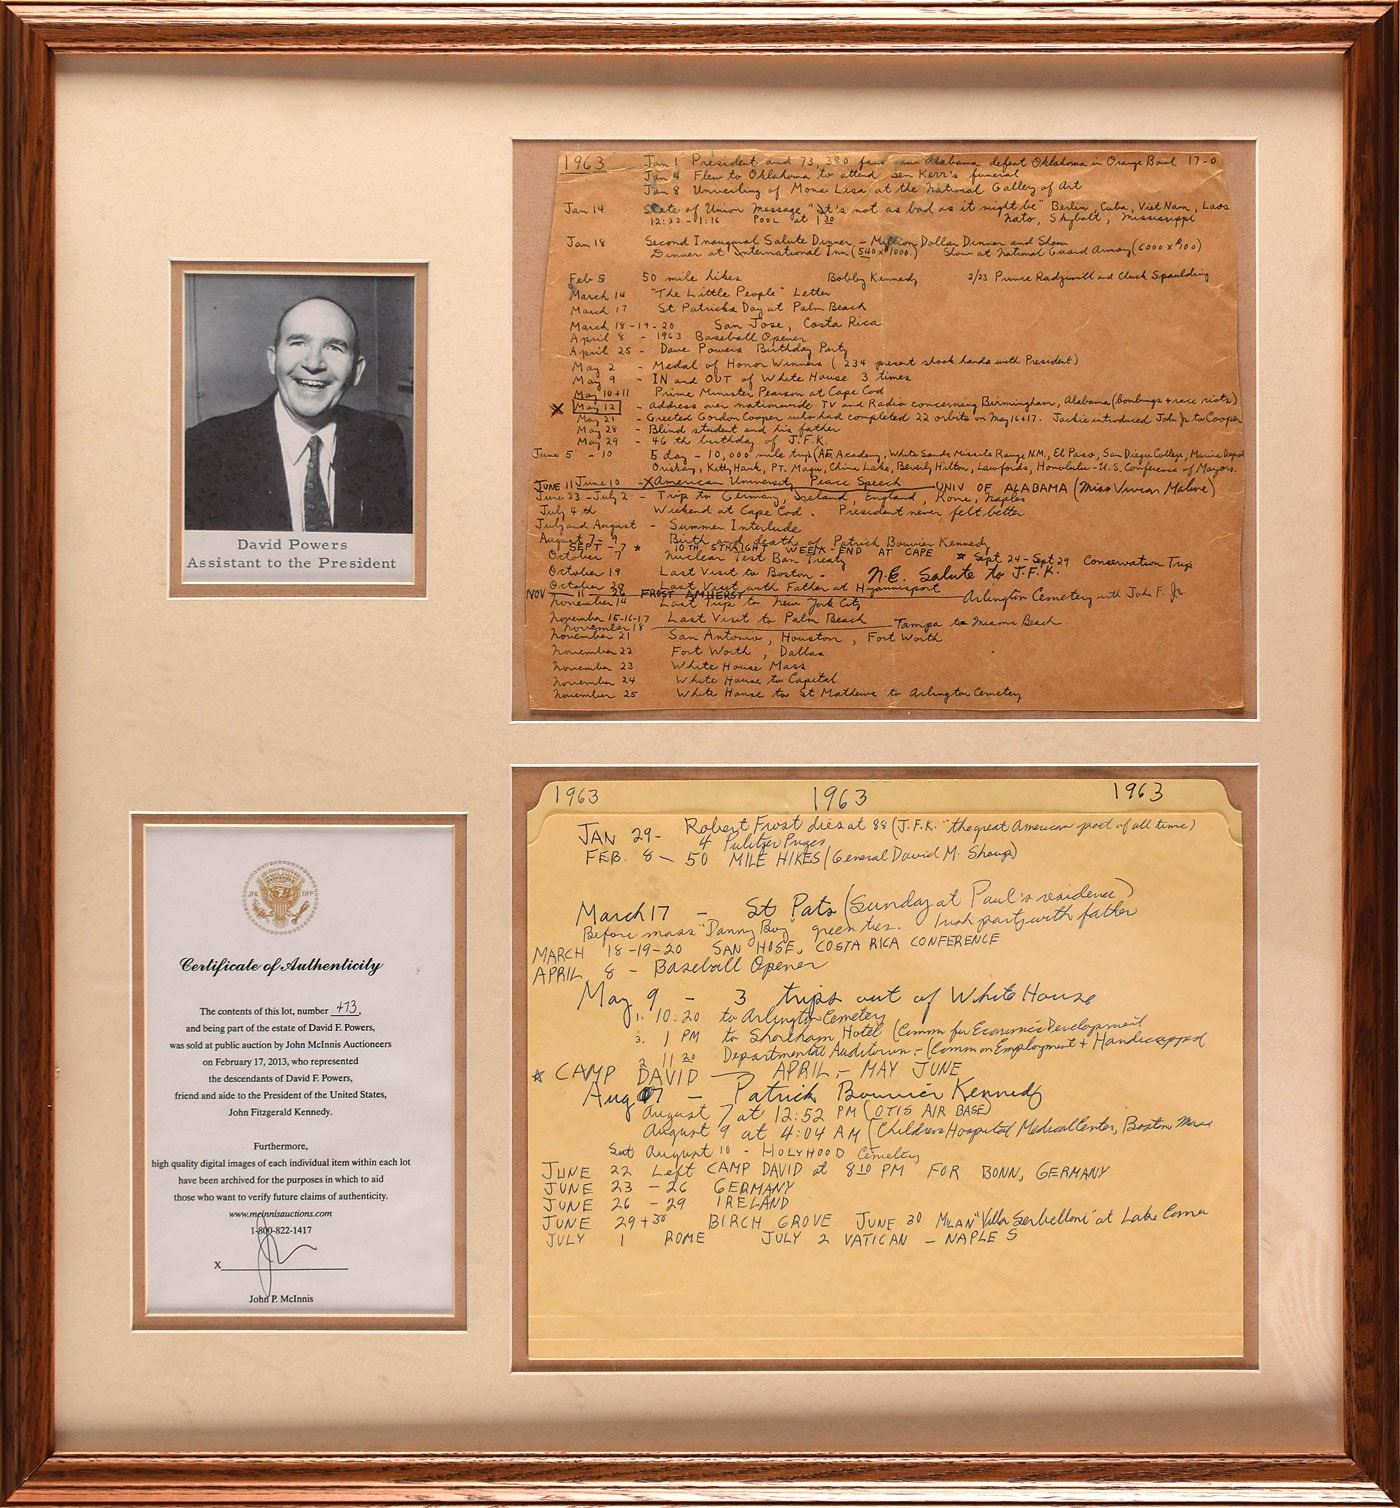 1963 Jan 1 President and 73,380 fans saw Alabama defeat Oklahoma in Orange Bowl 17-0
Jan 4 Flew to Oklahoma to attend Sen Kerr's funeral
Jan 8 Unveiling of Mona Lisa at the National Gallery of Art
Jan 14 State of Union Message "It's not as bad as it might be" Berlin, Cuba, Viet Nam, Laos
12:33-1:16 POOL at 1 30 Nato, Skybolt, Mississippi
Jan 18 Second Inaugural Salute Dinner - Million Dollar Dinner and Show
Dinner at International Inn (540 x 1000.) Show at National Guard Armory (6000 x 100)
Feb 5 50 mile hikes Bobby Kennedy 2/23 Prince Radziwill and Chuck Spaulding
March 14 "The Little People" Letter
March 17 St Patricks Day at Palm Beach
March 18-19-20 San Jose, Costa Rica
April 8 - 1963 Baseball Opener
April 25 - Dave Powers Birthday Party
May 2 - Medal of Honor Winners (234 present shook hands with President)
May 9 - IN and OUT of White House 3 times
May 10+11 Prime Minister Pearson at Cape Cod
X May 12 - Address over nationwide TV and Radio concerning Birmingham, Alabama (bombings + race riots)
May 21 - Greeted Gordon Cooper who had completed 22 orbits on May 16+17. Jackie introduced John Jr to Cooper
May 28 - Blind student and his father
May 29 - 46th birthday of J.F.K.
June 5 - 10 5 day - 10,000 mile trip (AF. Academy, White Sands Missile Range N.M., El Paso, San Diego College, Marine Depot
Oriskany, Kitty Hawk, PT. Magu, China Lake, Beverly Hilton, Lawfords, Honolulu - U.S. Conference of Mayors.
JUNE 11 June 10 - X American University Peace Speech UNIV OF ALABAMA (Miss Vivian Malone)
June 23 - July 2 - Trip to Germany, Ireland, England, Rome, Naples
July 4th Weekend at Cape Cod. President never felt better
July and August - Summer Interlude
August 7-9 Birth and death of Patrick Bouvier Kennedy
SEPT - * 10TH STRAIGHT WEEK-END AT CAPE * Sept 24 - Sept 29 Conservation Trip
October 7 Nuclear Test Ban Treaty
October 19 Last Visit to Boston - N.E. Salute to J.F.K.
October 20 Last Visit with Father at Hyannisport
NOV 11 26 FROST AMHERST Arlington Cemetery with John F. Jr.
November 14 Last Trip to New York City
November 15-16-17 Last Visit to Palm Beach
November 18 Tampa to Miami Beach
November 21 San Antonio, Houston, Fort Worth
November 22 Fort Worth, Dallas
November 23 White House Mass
November 24 White House to Capital
November 25 White House to St Mathews to Arlington Cemetery
David Powers
Assistant to the President
1963 1963 1963
JAN 29- Robert Frost dies at 88 (J.F.K. "the great American poet of all time)
4 Pulitzer Prizes
FEB. 8 - 50 MILE HIKES (General David M. Shoup)
March 17 - St Pats (Sunday at Paul's residence)
Before mass "Danny Boy" green ties. Irish party with father
MARCH 18-19-20 SAN HOSE, COSTA RICA CONFERENCE
APRIL 8 - Baseball Opener
May 9 - 3 trips out of White House
1. 10:20 to Arlington Cemetery
3. 1 PM to Shoreham Hotel (Comm for Economic Development
2 11 20 Departmental Auditorium - (Comm on Employment + Handicapped
* CAMP DAVID - APRIL - MAY JUNE
Aug 7 - Patrick Bouvier Kennedy
August 7 at 12:52 PM (OTIS AIR BASE)
August 9 at 4:04 AM (Childrens Hospital Medical Center, Boston Mass
Sat August 10 - HOLYHOOD Cemetery
JUNE 22 Left CAMP DAVID at 8 10 PM FOR BONN, GERMANY
JUNE 23 - 26 GERMANY
JUNE 26 - 29 IRELAND
JUNE 29 + 30 BIRCH GROVE JUNE 30 MILAN "Villa Serbelloni" at Lake Como
JULY 1 ROME JULY 2 VATICAN - NAPLES
JFK DFP
Certificate of Authenticity
The contents of this lot, number 473,
and being part of the estate of David F. Powers,
was sold at public auction by John McInnis Auctioneers
on February 17, 2013, who represented
the descendants of David F. Powers,
friend and aide to the President of the United States,
John Fitzgerald Kennedy.
Furthermore,
high quality digital images of each individual item within each lot
have been archived for the purposes in which to aid
those who want to verify future claims of authenticity.
www.mcinnisauctions.com
1-800-822-1417
X
John P. McInnis